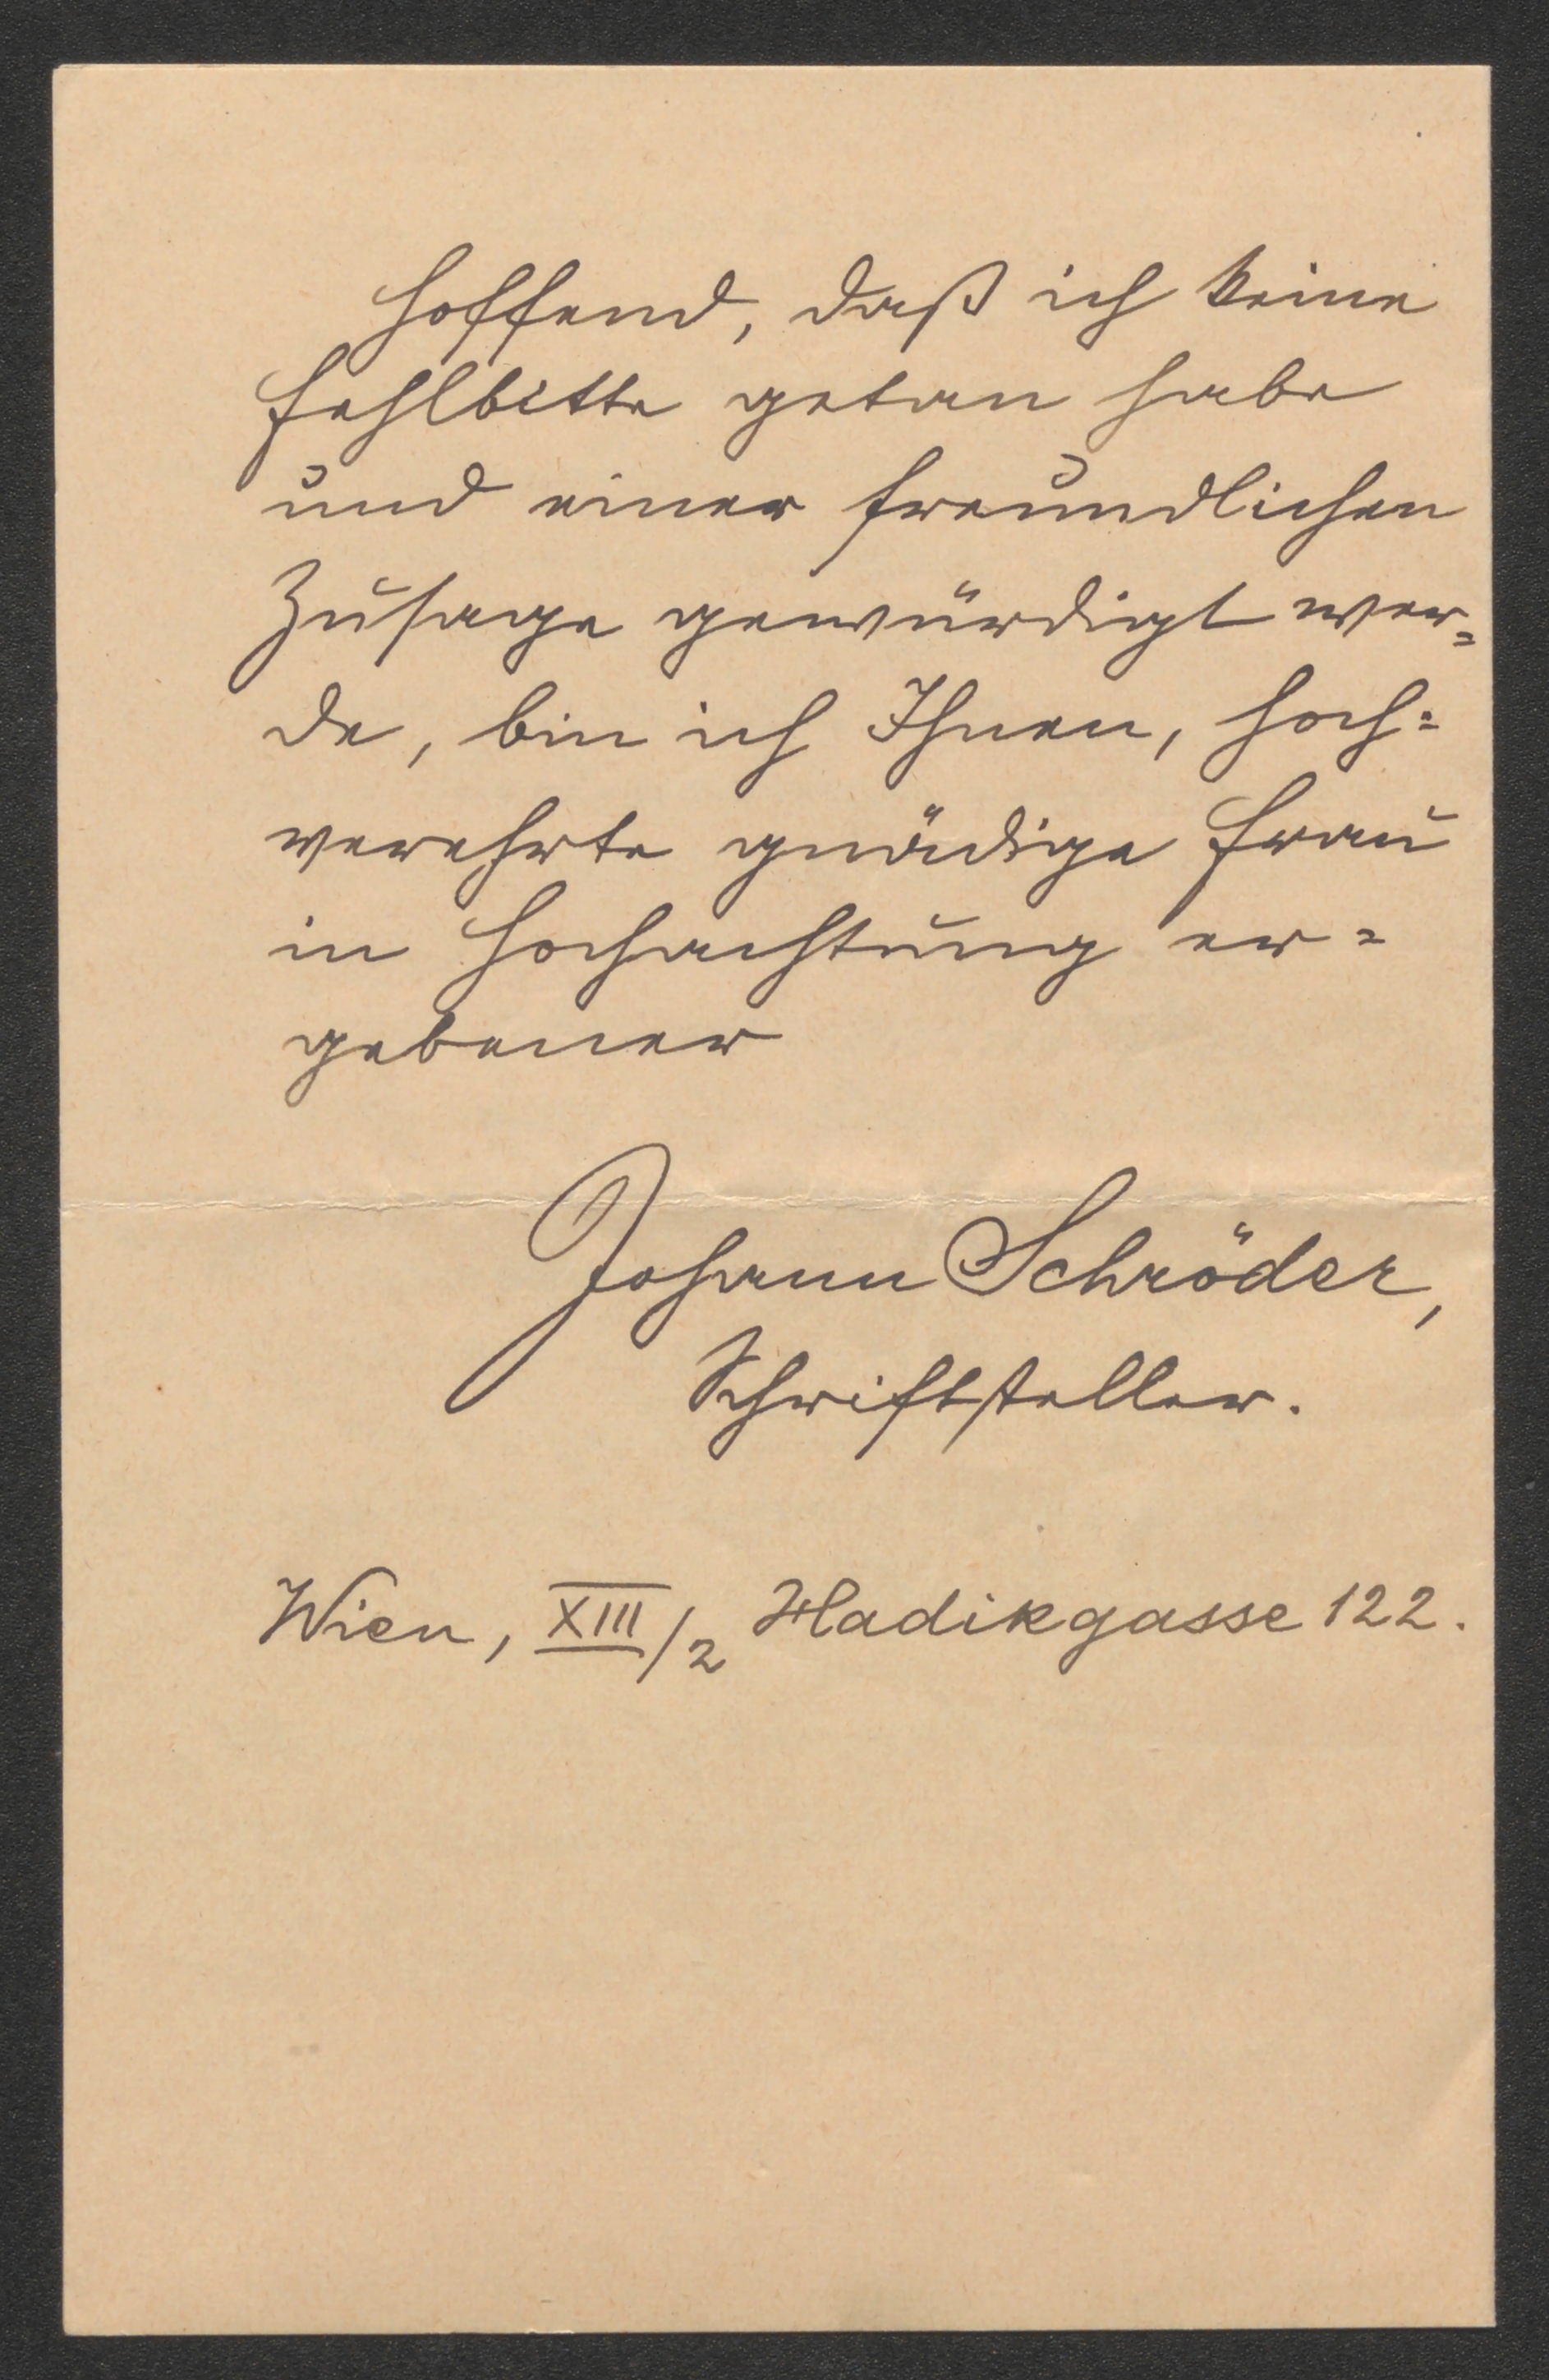 Hoffend, daß ich keine
Fehlbitte getan habe
und einer freundlichen
Zusage gewürdigt wer=
de, bin ich Ihnen, hoch=
verehrte gnädige Frau
in Hochachtung er=
gebener
Johann Schröder,
Schriftsteller.
Wien, XIII/2 Hadikgasse 122.